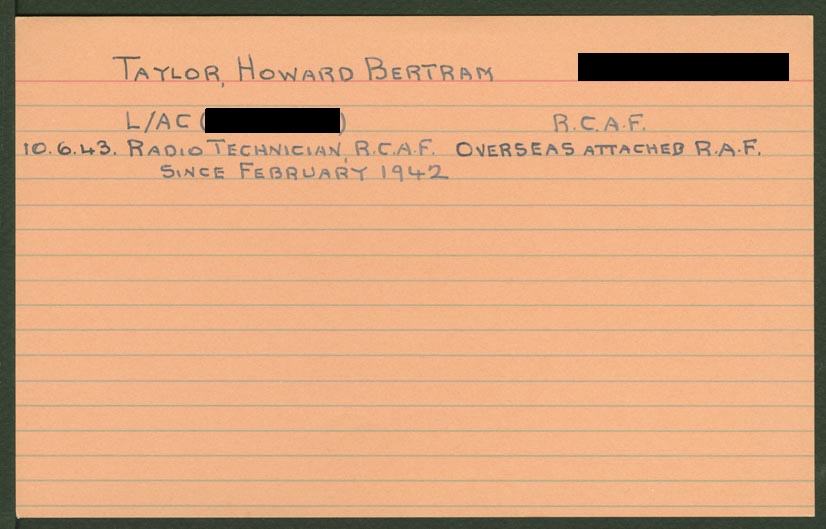 TAYLOR, HOWARD BERTRAM
L/AC ( ) R.C.A.F.
10.6.43. RADIO TECHNICIAN, R.C.A.F. OVERSEAS ATTACHED R.A.F.
SINCE FEBRUARY 1942